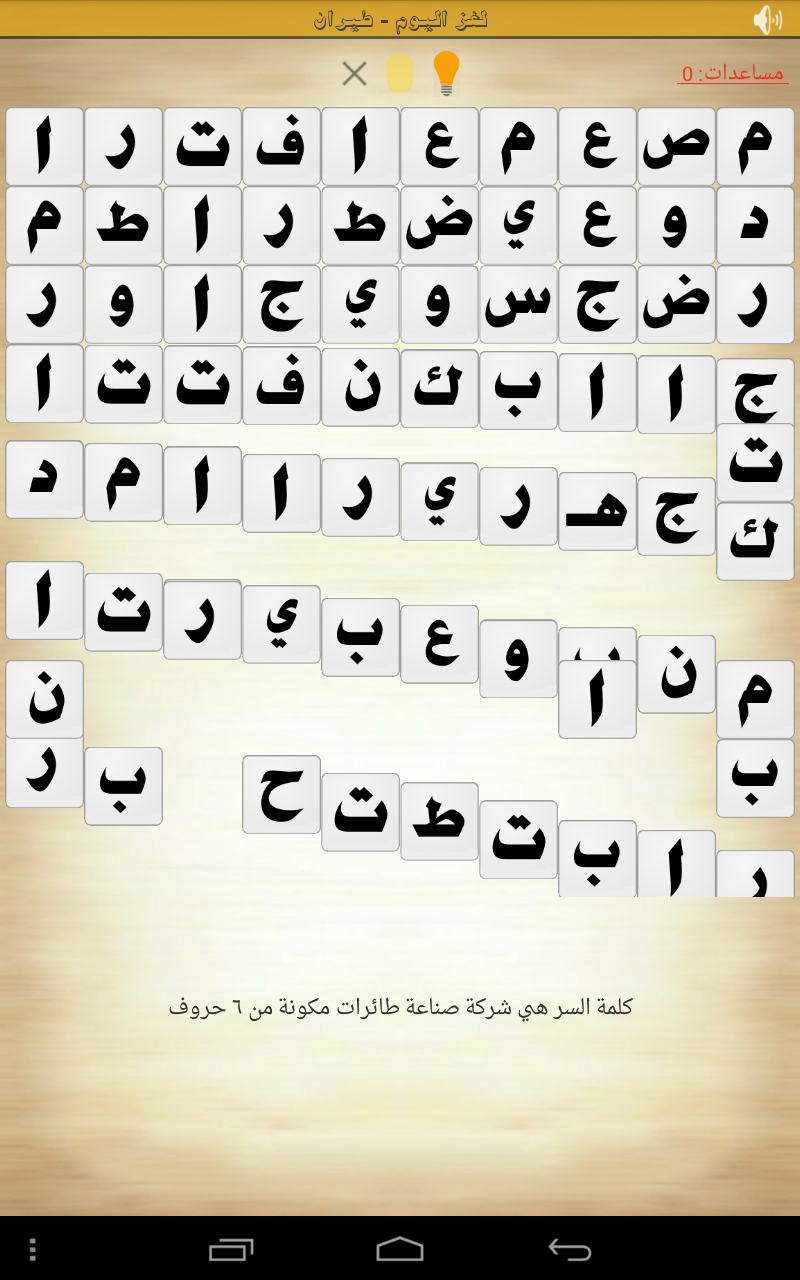 لغز اليوم - طيران
مساعدات: 0
م ص ع م ع ا ف ت ر ا
د و ع ي ض ط ر ا ط م
ر ض ج س و ي ج ا و ر
ج ا ا ب ك ن ف ت ت ا
ت
ج هـ ر ي ر ا ا م د
ك
م ن ب و ع ب ي ر ت ا
ا
ن
ب
ر ا ب ت ط ت ح ب ر
كلمة السر هي شركة صناعة طائرات مكونة من ٦ حروف